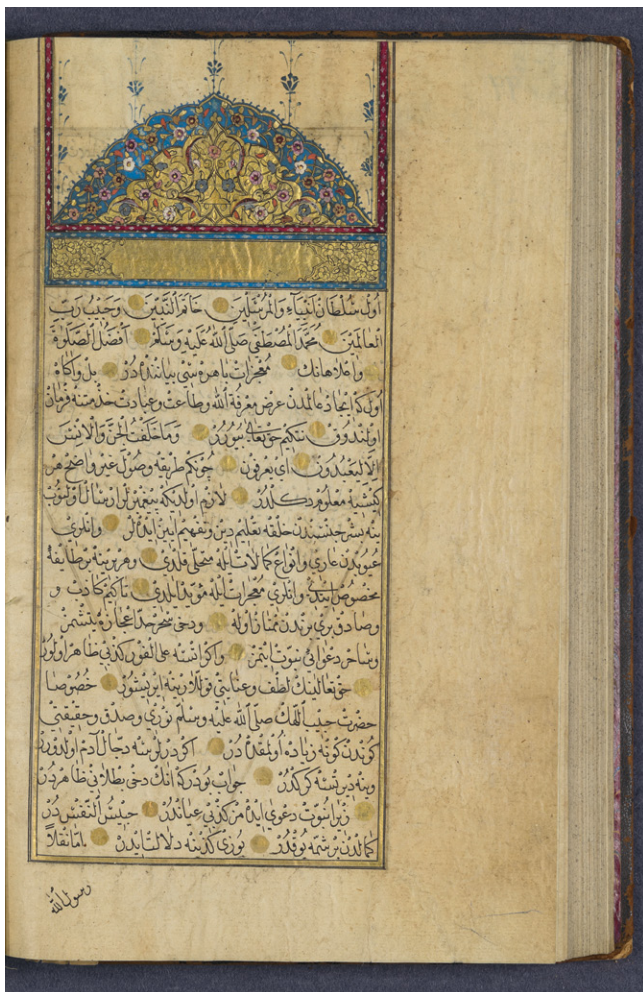 اول سلطان انبياء والمرسلين خاتم النبيين وحبيب رب
العالمين محمد المصطفى صلى الله عليه وسلم افضل الصلوة
واعلاهانك معجزات باهره سنى بياننده در بل واكاه
اول كه ايجاد عالمدن غرض معرفة الله وطاعت وعبادت خدمتنه فرمان
اولندون نتكيم حق تعالى بيورر وما خلقت الجن والانس
الا ليعبدون اى يعرفون چونكم طريقه وصول غير واضح هر
كيسيه معلوم دكلدر لازم اولديكه پيغمبرلر ارسال اولنوب
ينه بشر جنسندن خلقه تعليم دين وتفهيم ايين ايده لر وانلرى
عيوبدن عارى وانواع كمالات ايله متحلى قلدى وهر برينه بر طايفه
مخصوص ايتدى وانلرى معجزات ايله مؤيد ايلدى تاكيم كاذب و
صادق برى برندن ممتاز اوله ودخى سحر حد اعجازه يتشمز
وساحر دعواى نبوت ايتمز واكر ايتسه على الفور كذبى ظاهر اولور
حق تعالينك لطف وعنايتى قوللارينه ايرشور خصوصا
حضرت حبيب اللهك صلى الله عليه وسلم نورى وصدق وحقيقتى
كوندن كونه زياده اولمقده در اكر ديرلرسه دجال آدم اولدورر
وينه ديرتسه كركدر جواب بودركه انك دخى بطلانى ظاهردر
زيرا نبوت دعوى ايده مز كذبى عياندر خبيث النفس در
كمالدن برشمه يوقدر يوزى كذبنه دلالت ايدر اما نقلاً
رسول الله